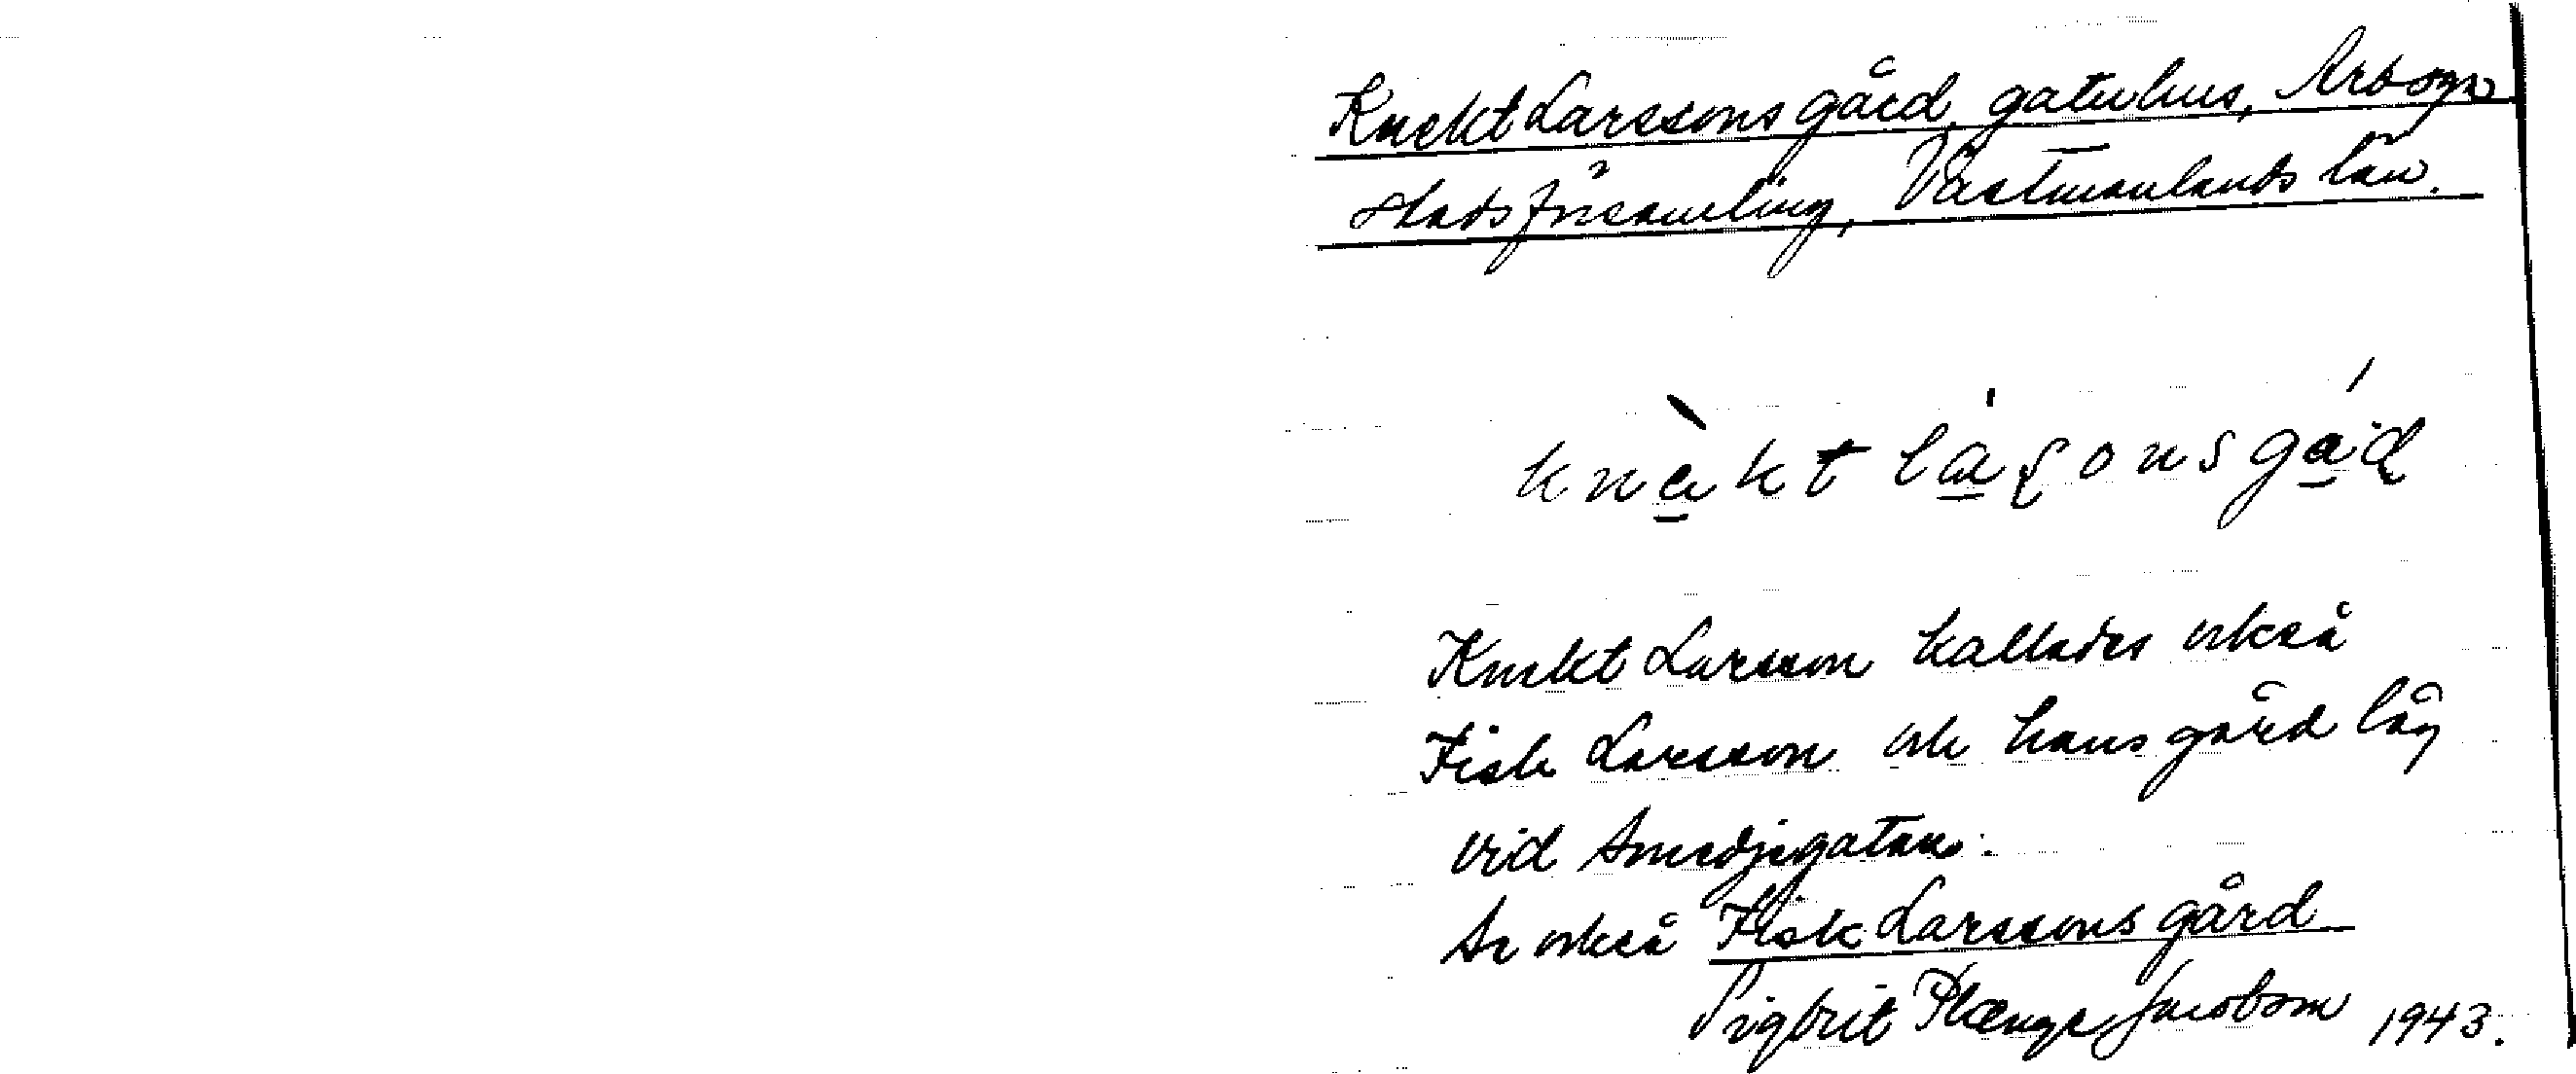 Knekt Larssons gård, gatuhus, Arboga
stadsförsamling, Västmanlands län.
knäkt lașonsgåd
Knekt Larsson kallades också
Fisk Larsson och hans gård låg
vid Smedjegatan.
Se också Fisk Larssons gård
Sigbrit Plænge Jacobson 1943.